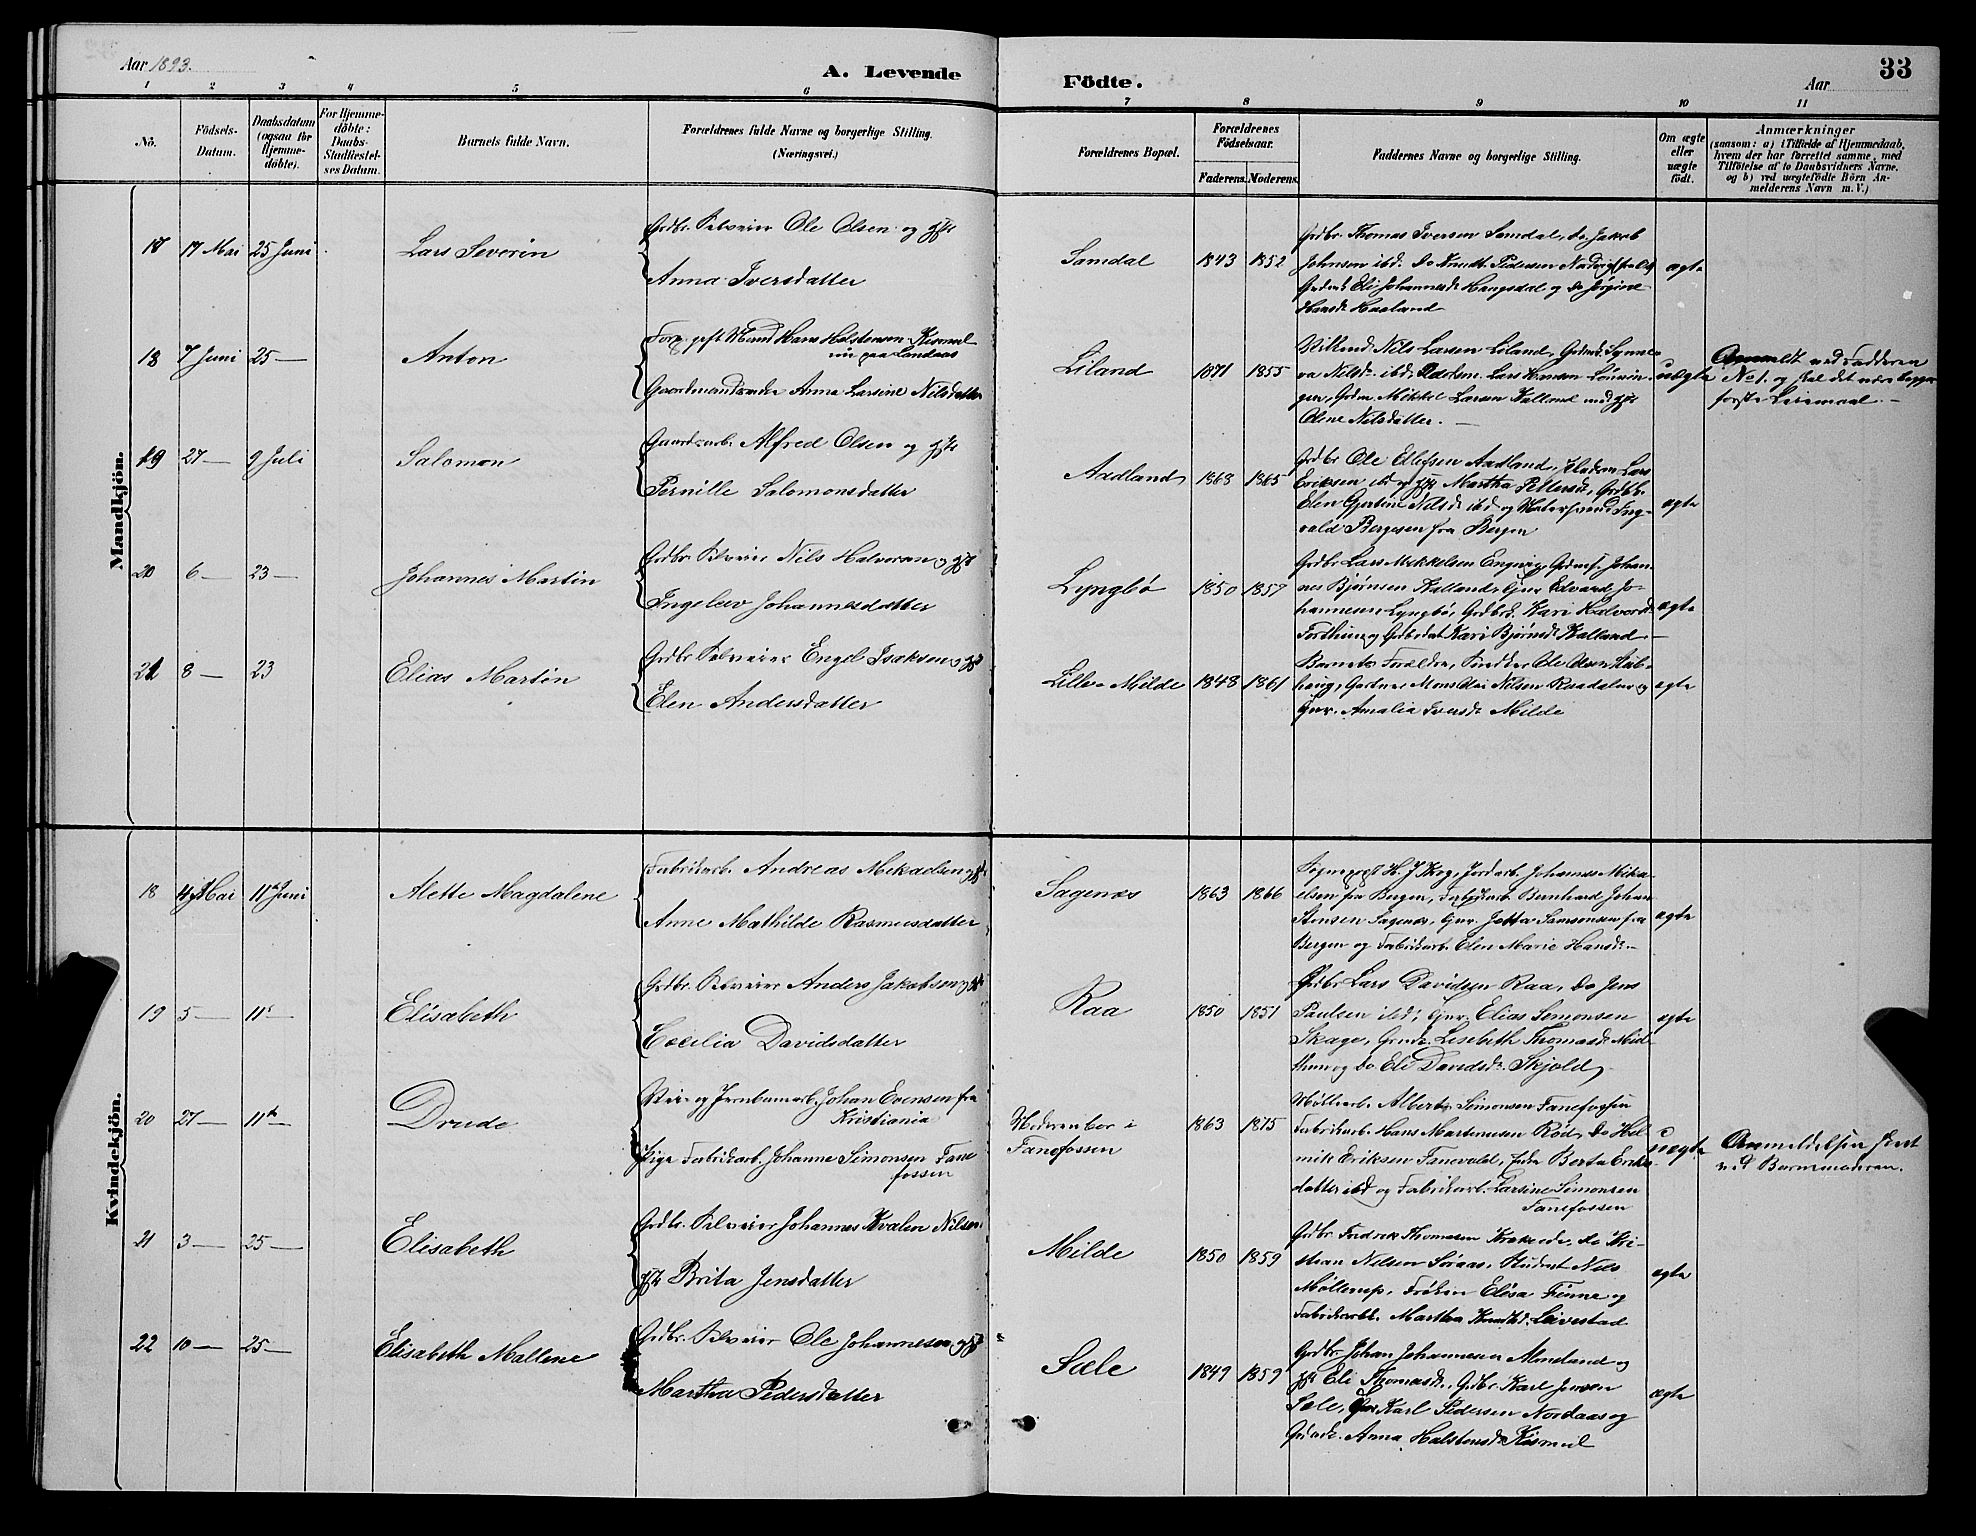 Aar 1893.
A. Levende
Födte.
Aar
33
1 2 3 4 5 6 7 8 9 10 11
No.
Födsels-
Datum.
Daabsdatum
(ogsaa for
Hjemme-
döbte).
For Hjemme-
döbte:
Daabs-
Stadfæstel-
ses Datum.
Barnets fulde Navn.
Forældrenes fulde Navne og borgerlige Stilling.
(Næringsvei.)
Forældrenes Bopæl.
Forældrenes
Födselsaar.
Faderens. Moderens.
Faddernes Navne og borgerlige Stilling.
Om ægte
eller
uægte
födt.
Anmærkninger
(saasom: a) i Tilfælde af Hjemmedaab,
hvem der har forrettet samme, med
Tilföielse af to Daabsvidners Navne.
og b) ved uægtefödte Börn An-
melderens Navn m. V.)
Mandkjön.
17 17 Mai 25 Juni
Lars Severin
Grdbr. Selveier Ole Olsen og
Anna Iversdatter
Samdal 1843 1852
Grdbr. Thomas Iversen Samdal, do Jakob
Johnsen ibd. do Knudt Pedersen
Eli Johannesdt Haugsdal og do Jørgine
Hansdt Haaland
ægte
18 7 Juni 25 —
Anton
gift Mand Hans Halstensen Kismul
nu paa Landaas
Gaardmandsenke Anna Larsine Nilsdatter
Liland 1871 1855
Nils Larsen Liland,
Nilsdt. ibd. Lars Hansen
Mikkel Larsen Kalland med
Olene Nilsdatter. —
uægte
Anmeldt ved Fadderen
No 1. og skal det være begges
første Leiermaal. —
19 27 — 9 Juli
Salomon
Gaardsarb. Alfred Olsen og
Pernille Salomonsdatter
Aadland 1868 1865
Grdbr. Ole Ellefsen Aadland, Lars
Eriksen ibd og Martha Pettersdt,
Elen Gjertine Nilsdt ibd og Ing-
vald Børgesen fra Bergen
ægte
20 6 — 23 —
Johannes Martin
Grdbr. Selveier Nils Halvorsen og
Ingeleev Johannesdatter
Lyngbö 1850 1857
Grdbr Lars Mikkelsen Engevig, Johan-
nes Bjørnsen Kalland, Edvard Jo-
hannesen Lyngbø, Kari Halvorsdt
og Kari Bjørnsdt Kalland —
ægte
21 8 — 23
Elias Martin
Grdbr. Selveier Engel Isaksen og
Elen Andersdatter
Lille-Milde 1848 1861
Barnets Forældre, Ole Olsen
haug, Mons Nilsen Raadalen og
Amalia Iversdt Milde
ægte
Kvindekjön.
18 4 Mai 11 Juni
Alette Magdalene
Fabrikarb. Andreas Mikaelsen og
Anne Mathilde Rasmusdatter
Sagenæs 1863 1866
Sogneprest H. J. Johannes Mika-
elsen fra Bergen, Fabrikarb. Bernhard Johan
Stensen Sagenæs, Jetta Samsonsen fra
Bergen og Fabrikarb. Elen Marie Hansdt. —
ægte
19 5 — 11 —
Elisabeth
Grdbr. Selveier Anders Jakobsen og
Cecilia Davidsdatter
Raa 1850 1851
Grdbr Lars Davidsen Raa, do Jens
Paulsen ibd, Elias Simonsen
Skage, Lisebeth Thomasdt Mid-
thun og do Eli Davidsdt. Skjold
ægte
20 27 — 11 —
Drude
og Johan Evensen fra
Kristiania
Pige Fabrikarb. Johanne Simonsen Fane
fossen
Moderen bor i
Fanefossen
1863 1875
Albert Simonsen Fanefossen
Fabrikarb. Hans Martinusen Rød, do Hel-
mik Eriksen Fanevold, Berta Eriks-
datter ibd og Fabrikarb. Larsine Simonsen
Fanefossen
uægte
Anmeldelsen skeet
ved Barnemoderen.
21 3 — 25 —
Elisabeth
Grdbr. Selveier Johannes Kvalen Nilsen
Brita Jensdatter
Milde 1850 1859
Grdbr. Fredrik Thomasen Krokeide, do Kri-
stian Nilsen Søraas, Student Nils
Møllerup, Frøken Elisa Finne og
Fabrikarb. Martha Knudsdt. Leirestad
ægte
22 10 — 25 —
Elisabeth Mallene
Grdbr. Selveier Ole Johannesen og
Martha Pedersdatter
Sæle 1849 1859
Grdbr. Johan Johannesen Almeland og
Eli Thomasdt, Grdbr. Karl Jensen
Sæle, Karl Pedersen Nordaas og
Anna Halstensdt Kismul
ægte